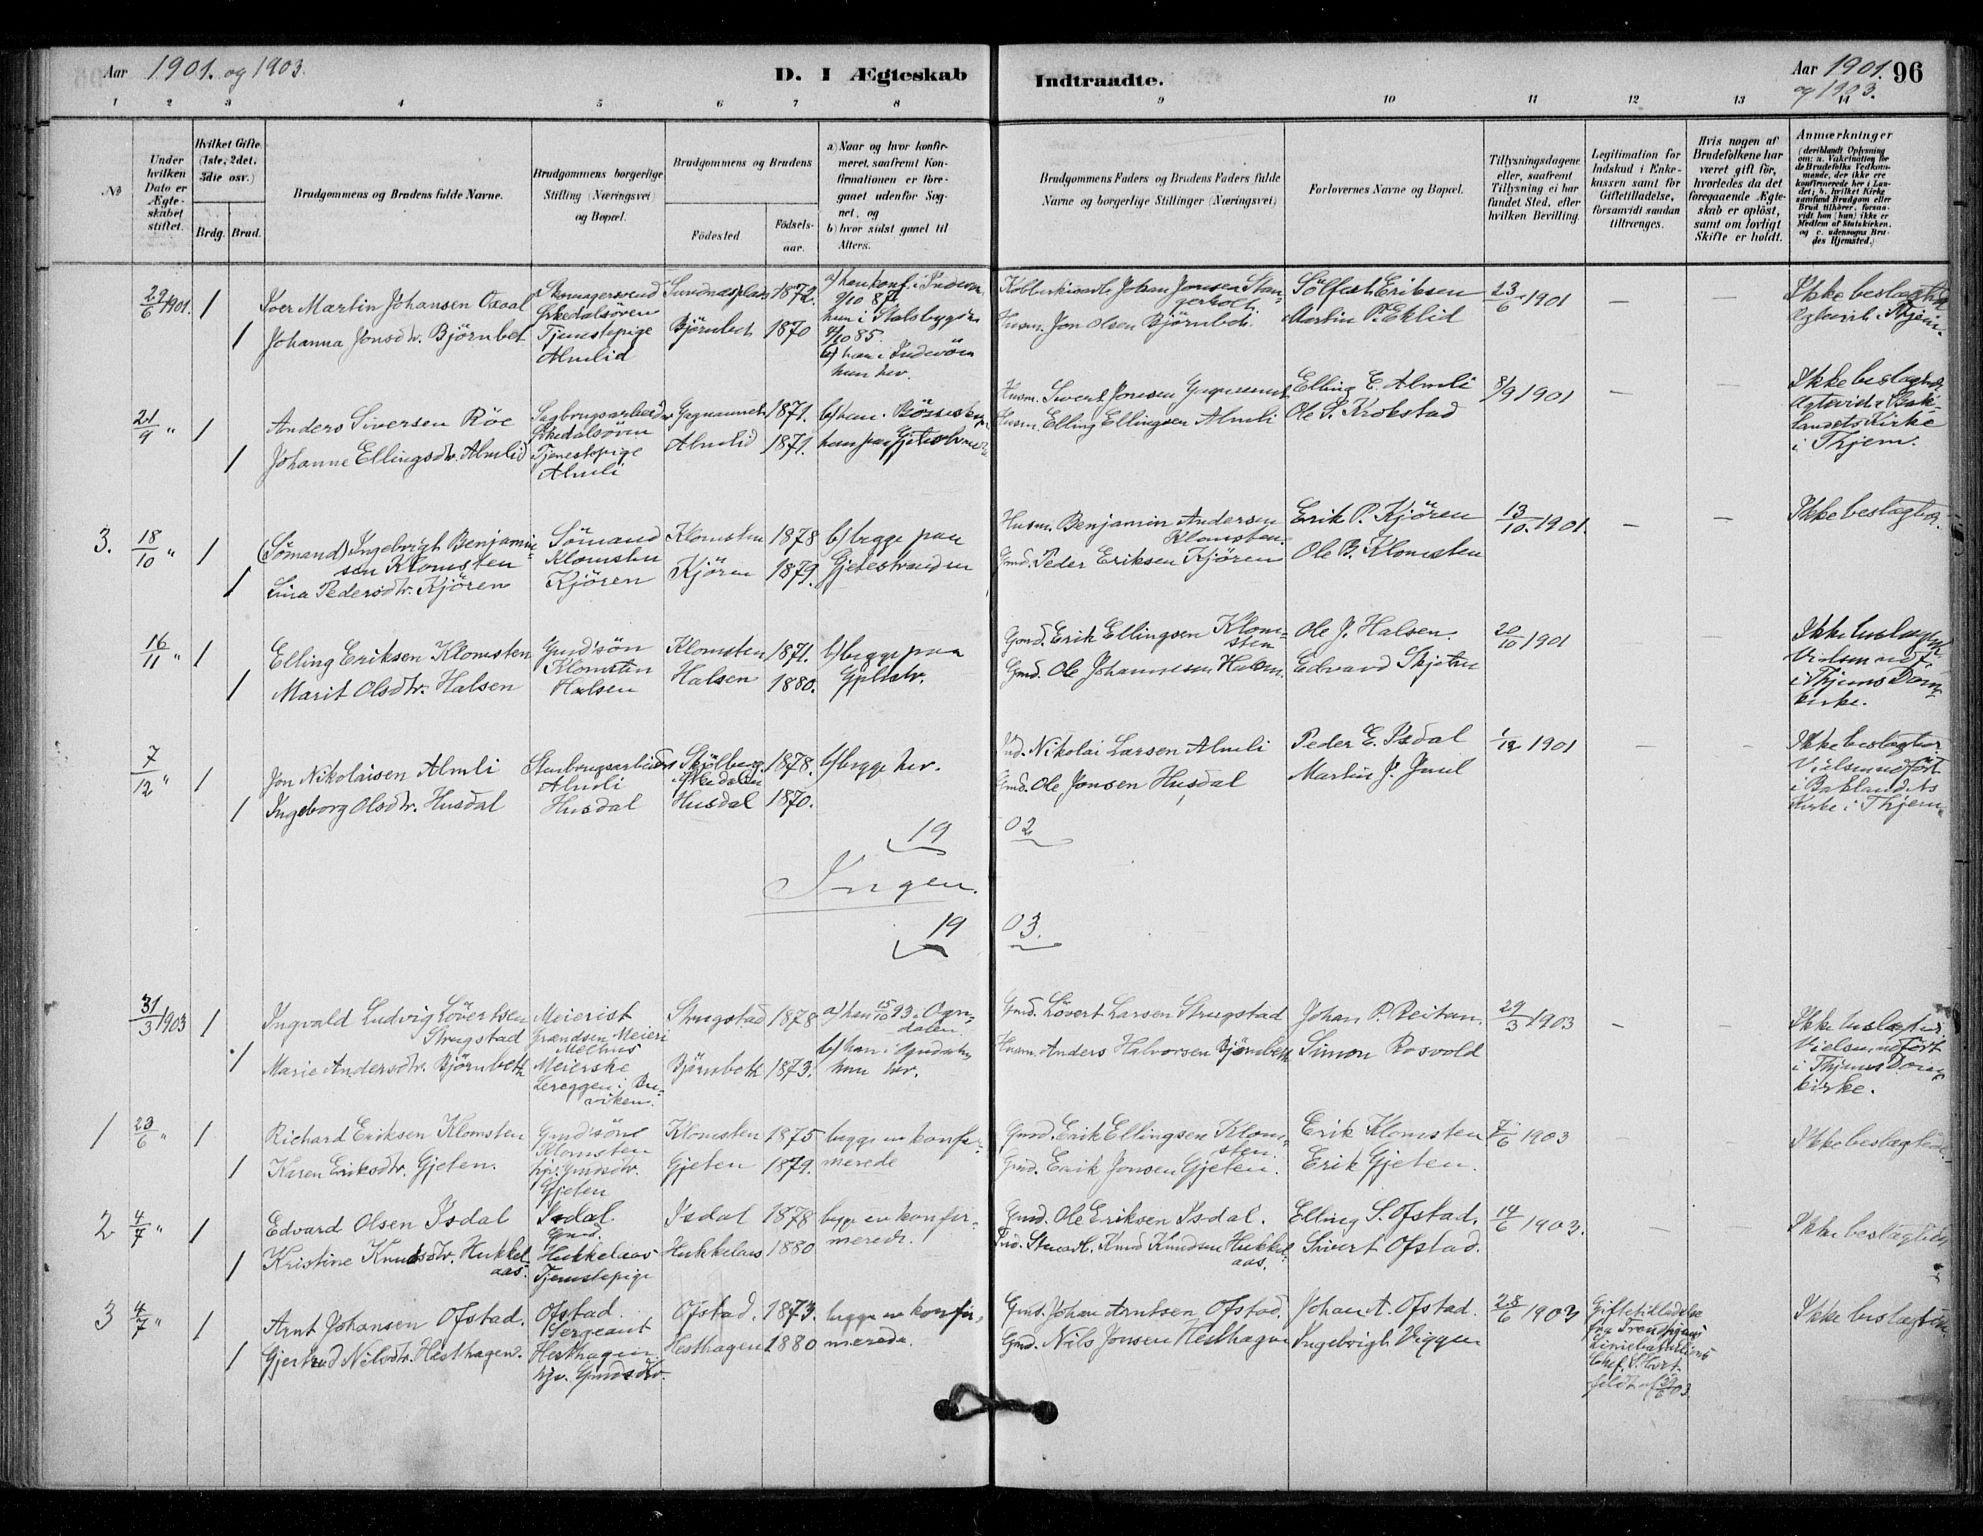 Aar 1901. og 1903.
D. I Ægteskab
Indtraadte.
Aar 1901. og 1903.
96
1 2 3 4 5 6 7 8 9 10 11 12 13 14
No
Under hvilken Dato er Ægteskabet stiftet.
Hvilket Gifte (1ste, 2det, 3die osv.)
Brdg. Brud.
Brudgommens og Brudens fulde Navne.
Brudgommens borgerlige Stilling (Næringsvei) og Bopæl.
Brudgommens og Brudens
Fødested
Fødselsaar.
a) Naar og hvor konfirmeret, saafremt Konfirmationen er foregaaet udenfor Sognet, og
b) hvor sidst gaaet til Alters.
Brudgommens Faders og Brudens Faders fulde Navne og borgerlige Stillinger (Næringsvei)
Forlovernes Navne og Bopæl.
Tillysningsdagene eller, saafremt Tillysning ei har fundet Sted, efter hvilken Bevilling.
Legitimation for Indskud i Enkekassen samt for Giftetilladelse, forsaavidt saadan tiltrænges.
Hvis nogen af Brudefolkene har været gift før, hvorledes da det foregaaende Ægteskab er opløst, samt om lovligt Skifte er holdt.
Anmærkninger
(deriblandt Oplysning om: a. Vakcination for de Brudefolks Vedkommende, der ikke ere konfirmerede her i Landet; b. hvilket Kirkesamfund Brudgom eller Brud tilhører, forsaavidt han (hun) ikke er Medlem af Statskirken, og c. udensogns Brudes Hjemsted.)
29/6 1901. 1 Iver Martin Johansen Oxaal Skomagersvend Orkedalsören Sundnæsplads 1872. a) han konf. i Inderöen 9/10 87, hun i Stalsbygden 4/10 85. b) han i Inderöen hun her.
1 Johanna Jonsdtr. Björnbet Tjenestepige Almlid Björnbet 1870
Johan Jonsen Husm. Jon Olsen Björnbet. Sölfest Eriksen Martin P. Eklid 23/6 1901 Ikke beslægtet
21/9 " 1 Anders Siversen Röe Sagbrugsarbeider Orkedalsören 1871. b) han i
1 Johanne Ellingsdtr. Almlid Tjenestepige Almli Almlid 1871.
Husm. Sivert Jonsen Husm. Elling Ellingsen Almli Elling E. Almli Ole S. Krokstad 8/9 1901 Ikke beslægtet Kirke i Thjem.
3. 18/10 " 1 (Sömand) Ingebrigt Benjaminsen Klomsten Sömand Klomsten Klomsten 1878 b) begge paa Gjetestranden
1 Lina Pedersdtr. Kjören Kjören Kjören 1879.
Husm. Benjamin Andersen Klomsten. Gmd. Peder Eriksen Kjören Erik P. Kjören Ole B. Klomsten 13/10 1901. Ikke beslægtet.
16/11 " 1 Elling Eriksen Klomsten Gmdsön Klomsten Klomsten 1871. b) begge paa Gjetstr.
1 Marit Olsdtr. Halsen Halsen Halsen 1880.
Gmd. Erik Ellingsen Klomsten Gmd. Ole Johannesen Halsen. Ole J. Halsen. Edvard Skjetne 20/10 1901 Ikke beslægtet Vielsen udf. i Thjems Domkirke.
7/12 " 1 Jon Nikolaisen Almli Stenbrugsarbeider Almli Skjölberg Orkedalen 1878. b) begge her.
1 Ingeborg Olsdtr. Husdal Husdal Husdal 1870.
Nikolai Larsen Almli Gmd. Ole Jonsen Husdal Peder E. Isdal Martin J. Juul 1/12 1901 Ikke beslægtet. Vielsen udfört i Baklandets Kirke i Thjem.
19 02
Ingen.
19 03.
31/3 1903 1 Ingvald Ludvig Lövertsen Strugstad Meierist Grændsen Meieri Melhus Strugstad 1878 a) han 15/10 93 i Ogndalen. b) han i Ogndalen hun her.
1 Marie Andersdtr. Björnbeth Meierske Lereggen i Buviken. Björnbeth 1873.
Gmd. Lövert Larsen Strugstad Husm. Anders Halvorsen Björnbeth Johan P. Reitan. Simon Rosvold 29/3 1903 Ikke beslægtet. Vielsen udfört i Thjems Domkirke.
1 23/6 " 1 Richard Eriksen Klomsten Gmdsön Klomsten Klomsten 1875 begge er konfirmerede
1 Karen Eriksdtr. Gjeten. hjv. Gmdsdtr. Gjeten Gjeten 1879.
Gmd. Erik Ellingsen Klomsten. Gmd. Erik Jonsen Gjeten. Erik Klomsten Erik Gjeten. 7/6 1903 Ikke beslægtede.
2 4/7 " 1 Edvard Olsen Isdal Isdal Gmd. Isdal 1878 begge er konfirmerede.
1 Kristine Knudsdtr. Hukkelaas. Hukkelaas Tjenestepige Hukkelaas 1880
Gmd. Ole Eriksen Isdal. Knud Knudsen Hukkelaas. Elling S. Ofstad. Sivert Ofstad. 14/6 1903. Ikke beslægtede
3 4/7 " 1 Arnt Johansen Ofstad. Ofstad. Sergeant Ofstad. 1873. begge er konfirmerede.
1 Gjertrud Nilsdtr. Hesthagen. Hesthagen hjv. Gmdsdtr. Hesthagen 1880
Gmd. Johan Arntsen Ofstad. Gmd. Nils Jonsen Hesthagen Johan A. Ofstad. Ingebrigt Viggen 28/6 1903 Giftetilladelse fra Trondhjems Liniebattaillons Chef Ikke beslægtede